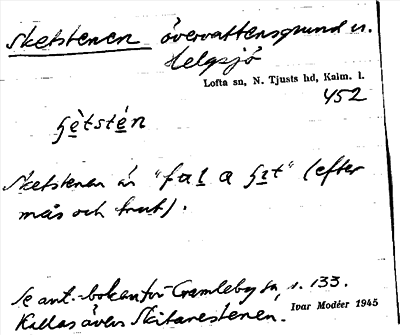 Sketstenen övervattensgrund n.
Helgsjö
Lofta sn, N. Tjusts hd, Kalm. l.
452
ʂètstén
Sketstenen är "ful a ʂit" (efter
mås och trut).
Se ant.-boken för Gamleby sn, s. 133.
Kallas även Skitarestenen.
Ivar Modéer 1945